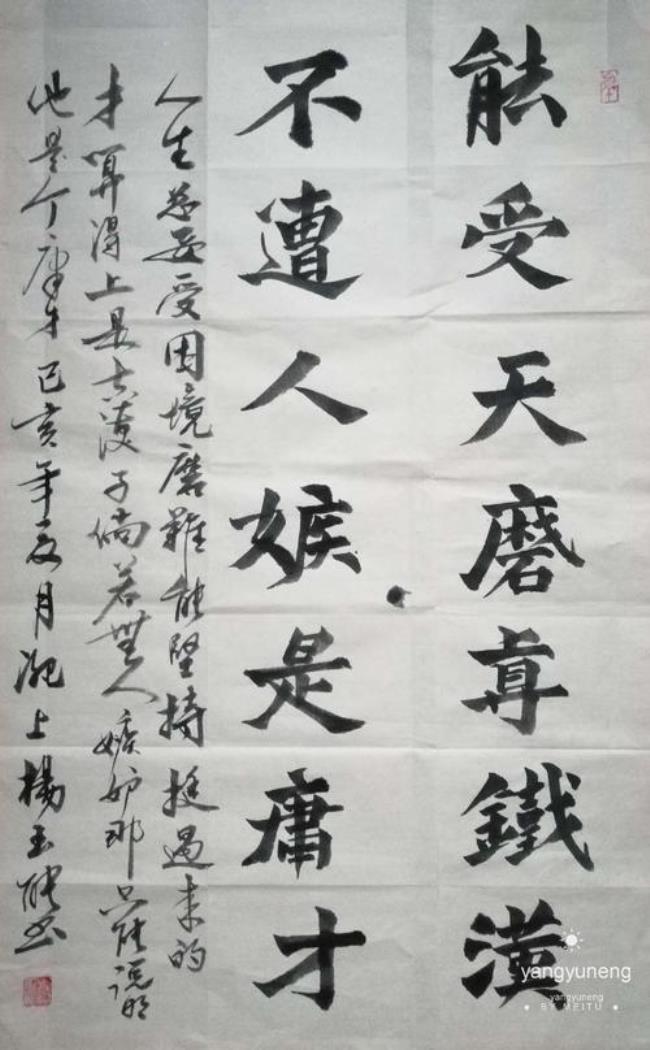 能受天磨真鐵漢
不遭人嫉是庸才
人生总要受困境磨難能堅持挺過来的
才算得上是真漢子倘若無人嫉妒那只能说明
他是个庸才己亥年夏月淝上楊玉能书
yangyuneng
yangyuneng
BY MEITU